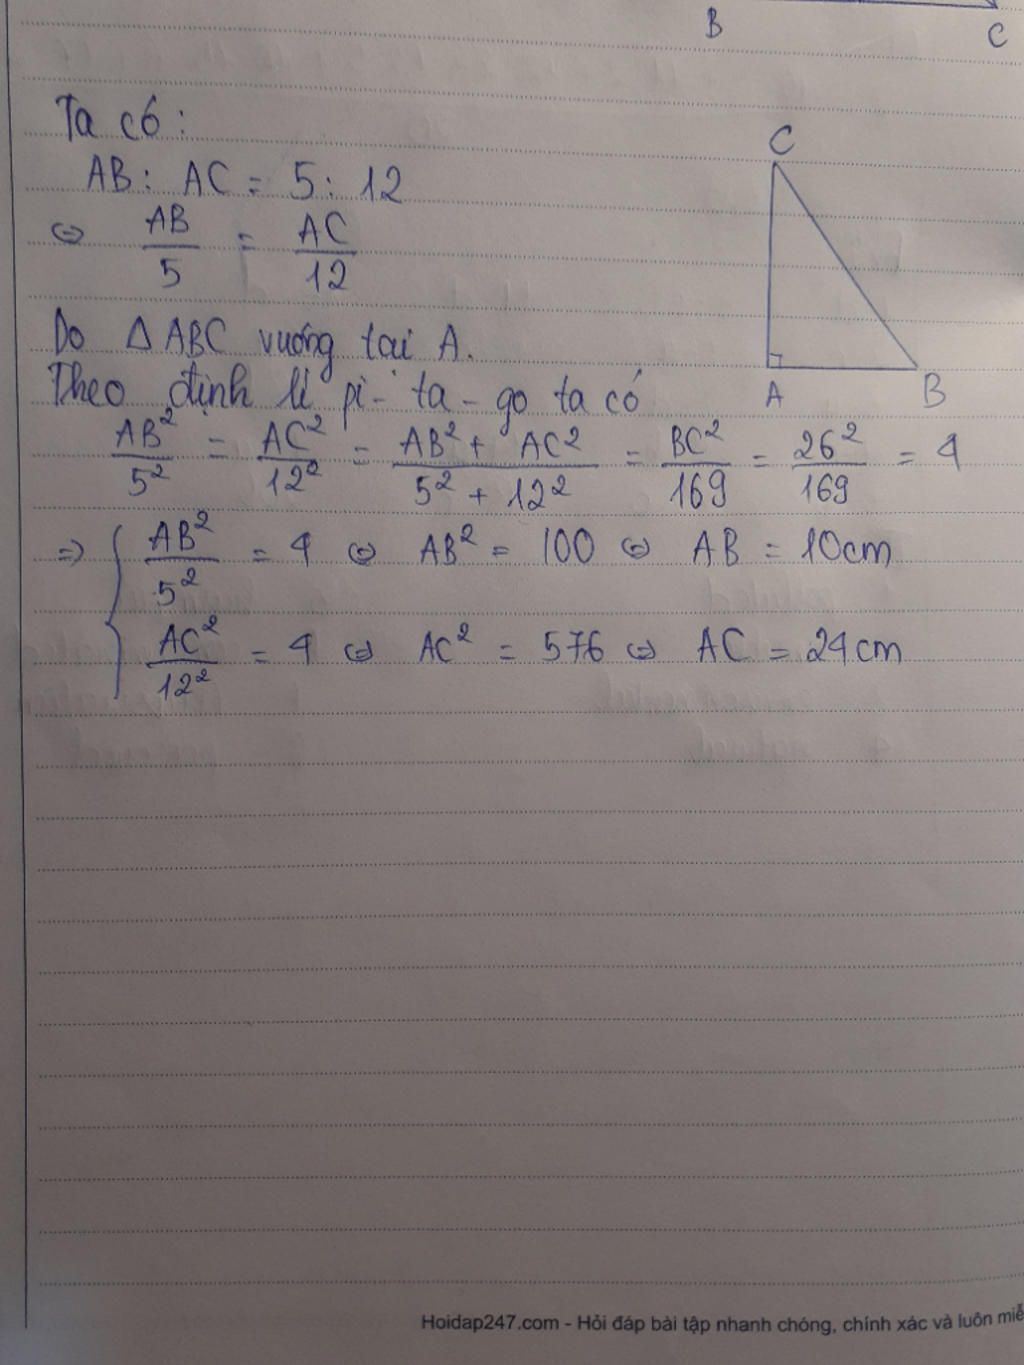 B
C
Ta có:
AB: AC = 5: 12
⇔ AB/5 = AC/12
Do ΔABC vuông tại A.
Theo định lí pi-ta-go ta có
AB²/5² = AC²/12² = AB² + AC²/5² + 12² = BC²/169 = 26²/169 = 4
⇒ { AB²/5² = 4 ⇔ AB² = 100 ⇔ AB = 10cm
AC²/12² = 4 ⇔ AC² = 576 ⇔ AC = 24cm
C
A
B
Hoidap247.com - Hỏi đáp bài tập nhanh chóng, chính xác và luôn miễ